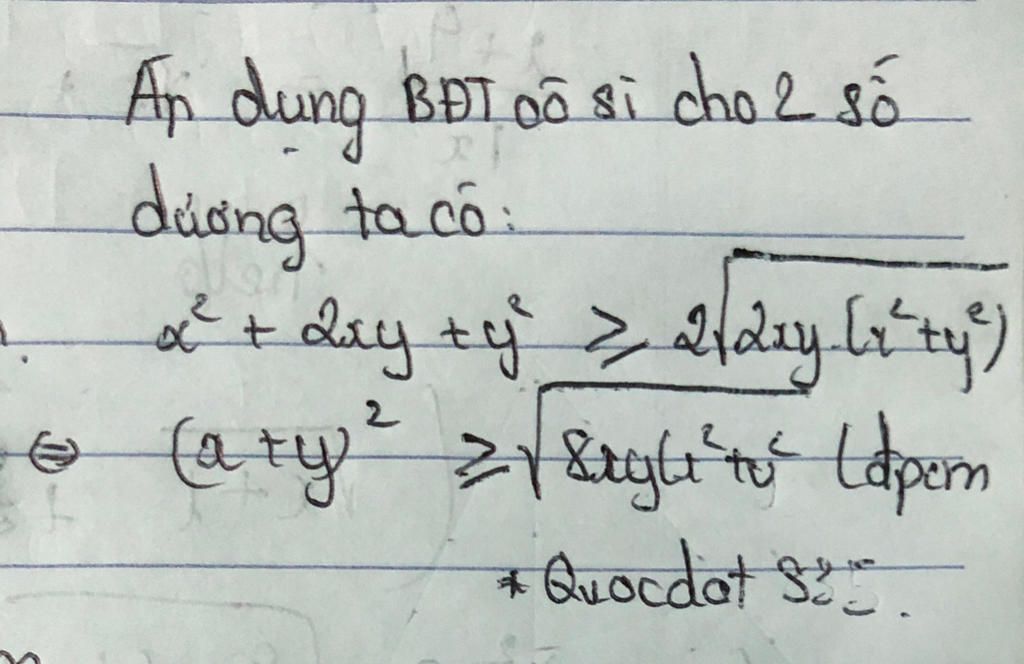 Áp dụng BĐT cô si cho 2 số
dương ta có:
x² + 2xy + y² ≥ 2√2xy.(x²+y²)
⇔ (x+y)² ≥ √8xy(x²+y² (đpcm
* Quocdat